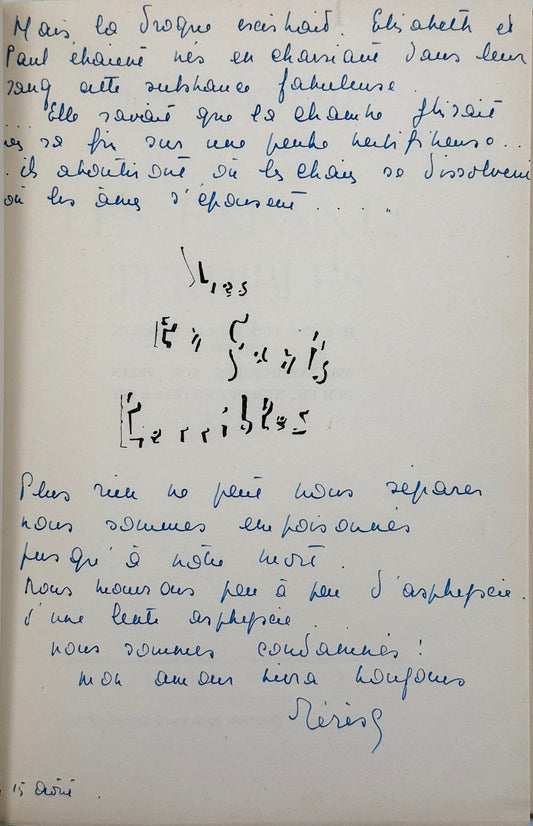 Mais la drogue existait. Elisabeth et
Paul étaient nés en charriant dans leur
sang cette substance fabuleuse.
... Elle savait que la chambre glissait
vers sa fin sur une pente vertigineuse...
. ils aboutiront où les chairs se dissolvent
où les âmes s'épousent . . . "
Les
Enfants
Terribles
Plus rien ne peut nous séparer
nous sommes empoisonnés
jusqu'à notre mort.
Nous mourons peu à peu d'asphyxie.
d'une lente asphyxie.
nous sommes condamnés !
mon amour vivra toujours
15 avril.